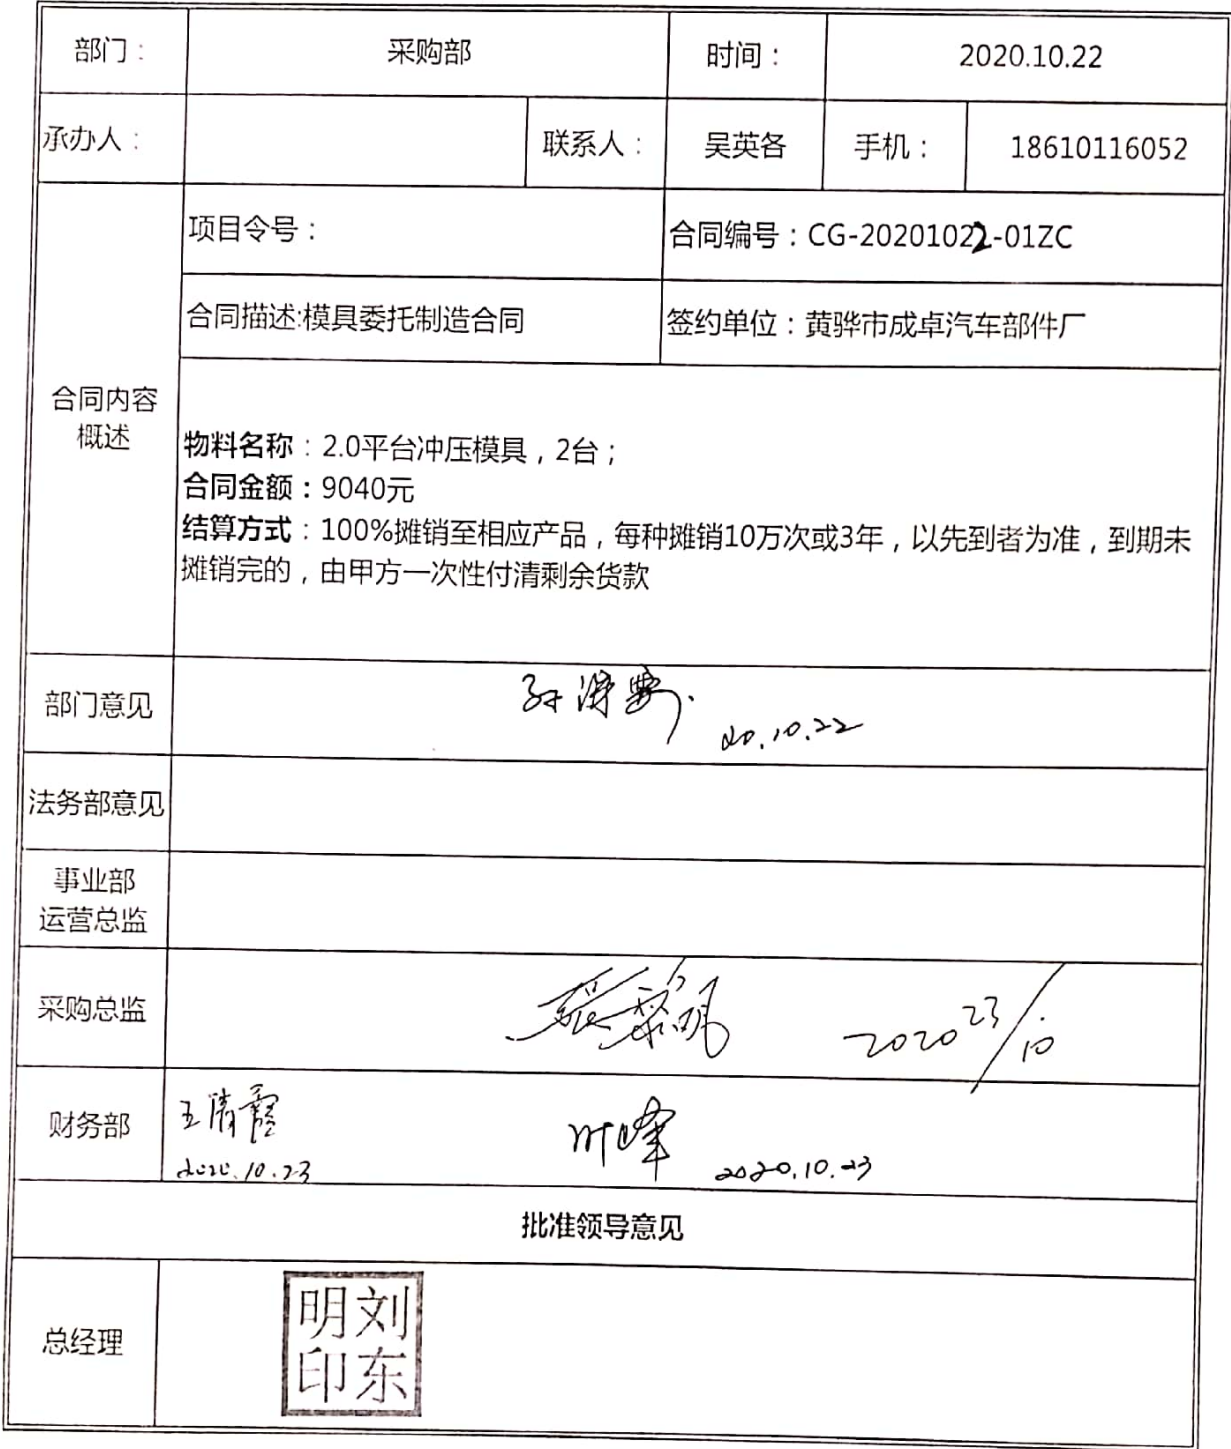 部门： 采购部 时间： 2020.10.22
承办人： 联系人： 吴英各 手机： 18610116052
项目令号： 合同编号：CG-20201022-01ZC
合同描述:模具委托制造合同 签约单位：黄骅市成卓汽车部件厂
合同内容
概述
物料名称：2.0平台冲压模具，2台；
合同金额：9040元
结算方式：100%摊销至相应产品，每种摊销10万次或3年，以先到者为准，到期未
摊销完的，由甲方一次性付清剩余货款
部门意见
20.10.22
法务部意见
事业部
运营总监
采购总监 2020 23/10
财务部 王清霞 叶峰
2020.10.23 2020.10.23
批准领导意见
总经理
刘东
明印